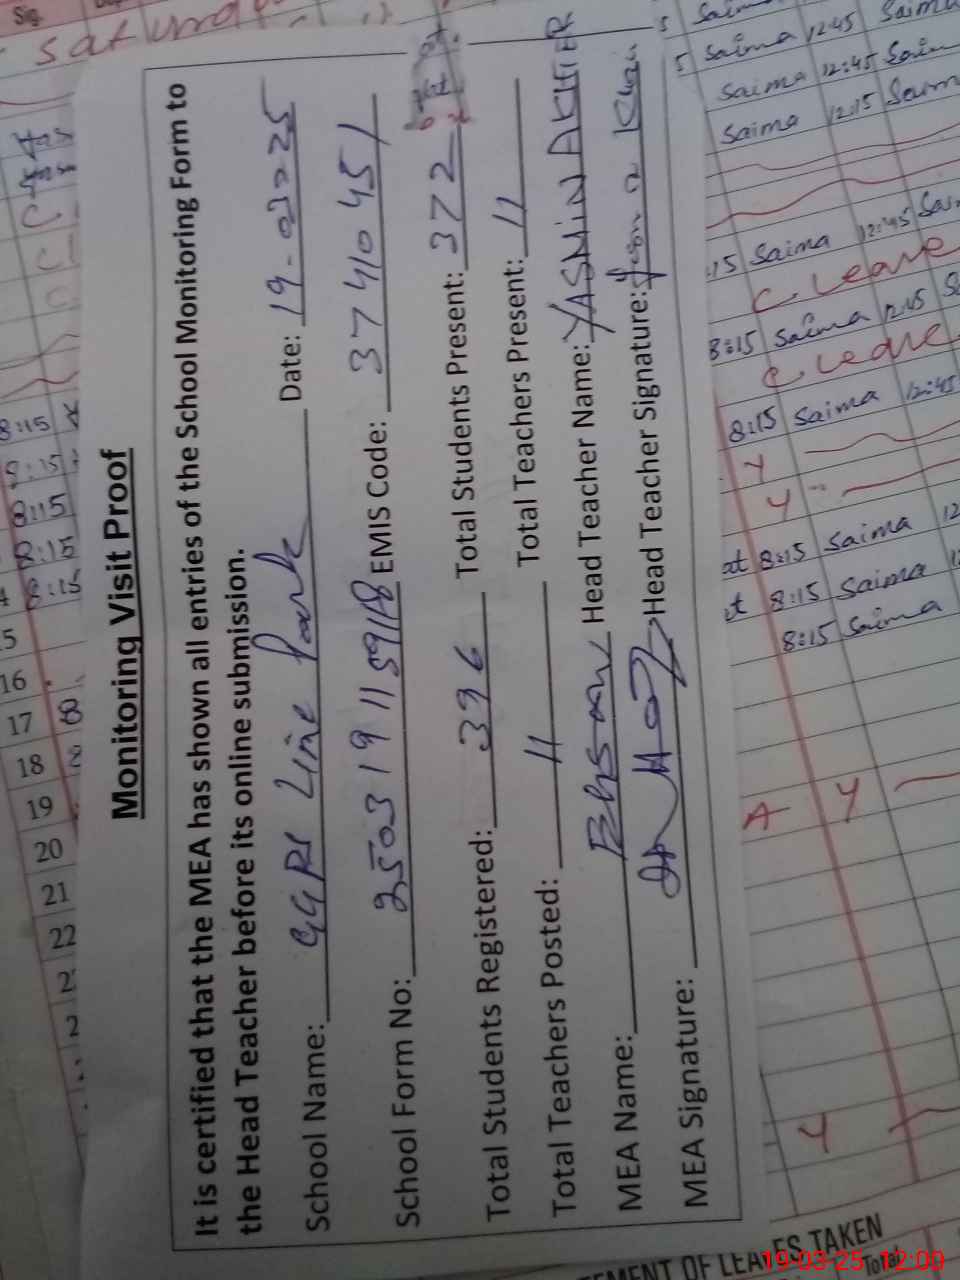 Monitoring Visit Proof
It is certified that the MEA has shown all entries of the School Monitoring Form to
the Head Teacher before its online submission.
School Name: GGPS Line Park Date: 19-03-2025
School Form No: 2503191159118 EMIS Code: 37410451
Total Students Registered: 396 Total Students Present: 372
Total Teachers Posted: 11 Total Teachers Present: 11
MEA Name: Head Teacher Name: YASMIN AKHTER
MEA Signature: Head Teacher Signature:
Sig.
saturday
5 Saima 12:45 Saima
Saima 12:45 Saima
Saima 12:15 Saima
:15 Saima 12:45 Saima
C. Leave
8:15 Saima 12:45
C. Leave
8:15 Saima 12:45
Y
Y
at 8:15 Saima 12
8:15 Saima
8:15 Saima
A Y
Y
8:15
8:15
8:15
8:15
8:15
5
16
17
18
19
20
21
22
2
2
EMENT OF LEAVES TAKEN
Total
19-03-25 12:00